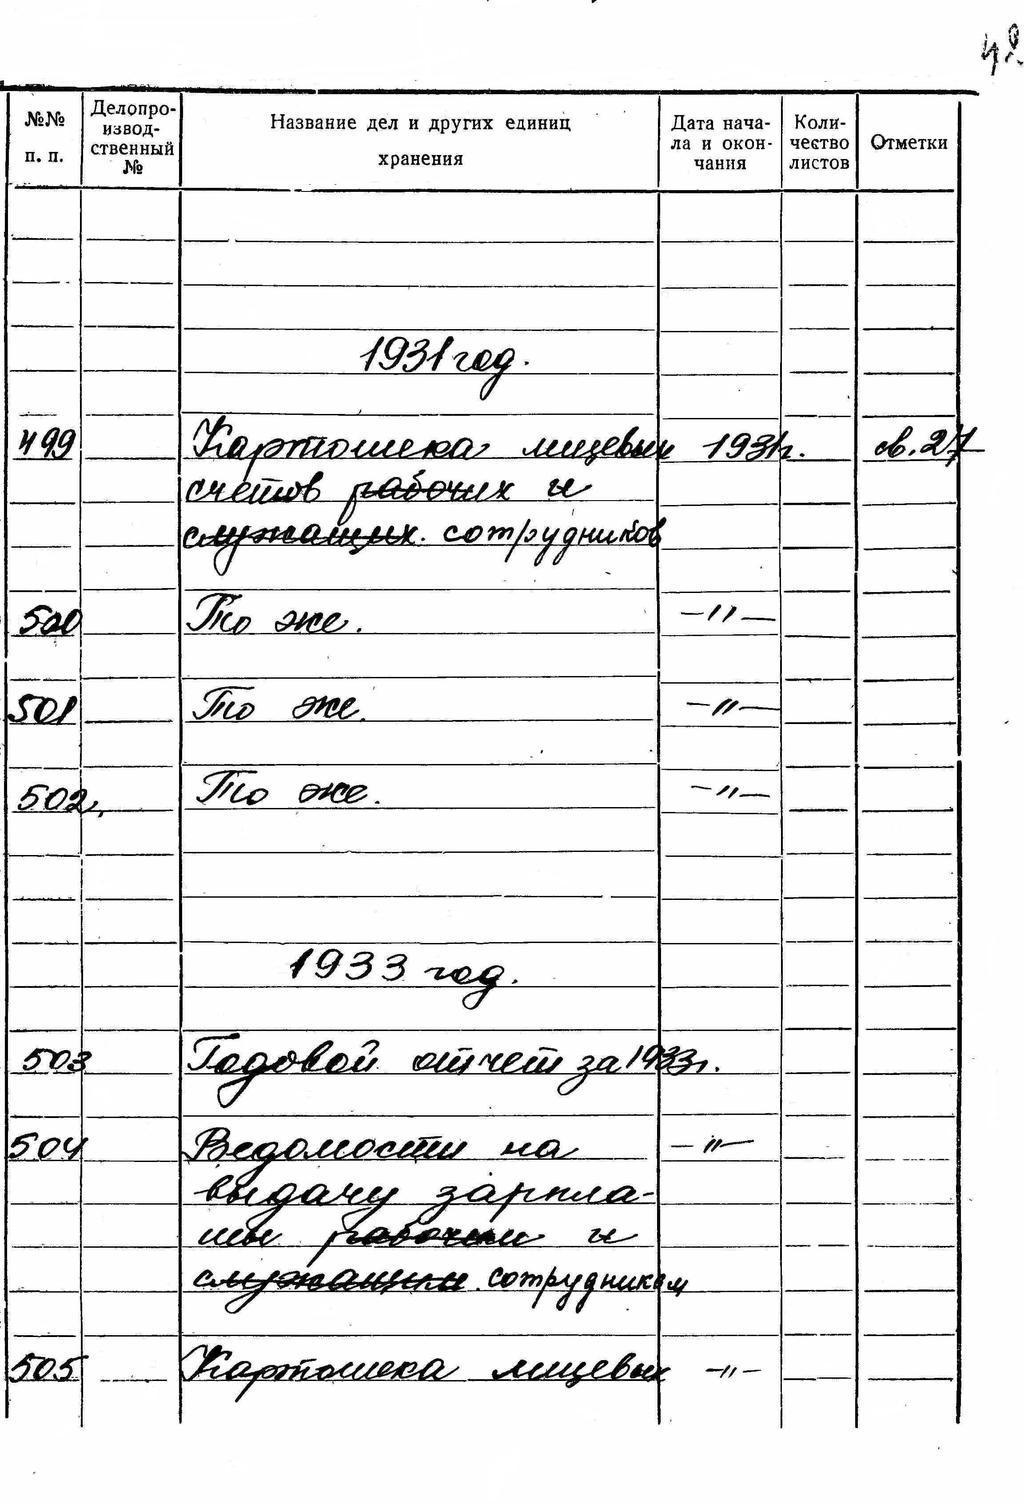 42
№№ п. п.
Делопро-
извод-
ственный
№
Название дел и других единиц
хранения
Дата нача-
ла и окон-
чания
Коли-
чество
листов
Отметки
1931 год.
499 Картотека лицевых 1931г. св. 27
счетов рабочих и
служащих. сотрудников
500 То же. -"-
501 То же. -"-
502. То же. -"-
1933 год.
503 Годовой отчет за 1933г.
504 Ведомости на -"-
выдачу зарпла-
ты рабочим и
служащим. сотрудникам
505 Картотека лицевых -"-